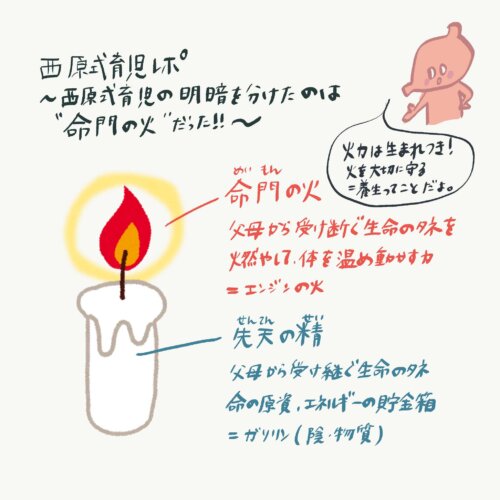 西原式育児レポ
〜西原式育児の明暗を分けたのは
"命門の火"だった!!〜
火力は生まれつき!
火を大切に守る
=養生ってことだよ。
めいもん
命門の火
父母から受け断ぐ生命のタネを
燃やして、体を温め動かす力
=エンジンの火
せんてん せい
先天の精
父母から受け継ぐ生命のタネ
命の原資、エネルギーの貯金箱
=ガソリン(陰・物質)